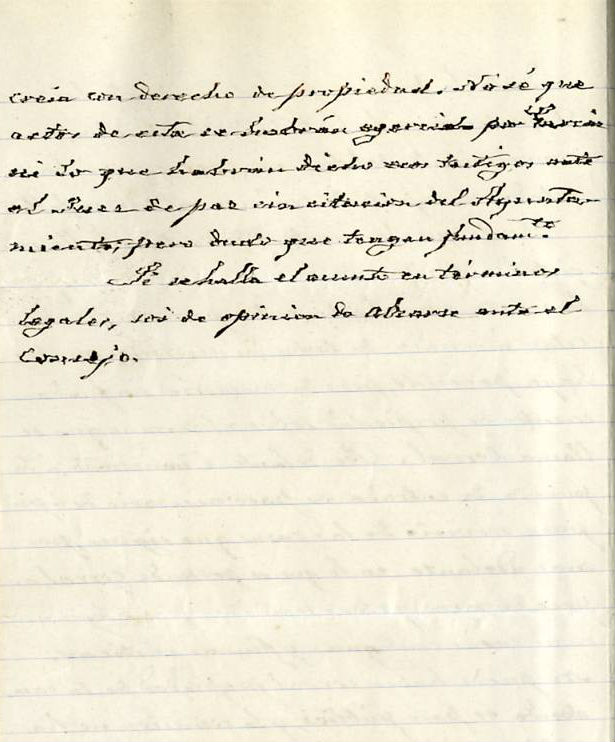 creía con derecho de propiedad. No sé que
actos de esta se habrán egercido por
ni lo que habrán dicho esos testigos ante
el Juez de paz sin citacion del Ayunta-
miento; pero dudo que tengan fundamto.
Si se halla el asunto en términos
legales, soi de opinion de alzarse ante el
Consejo.